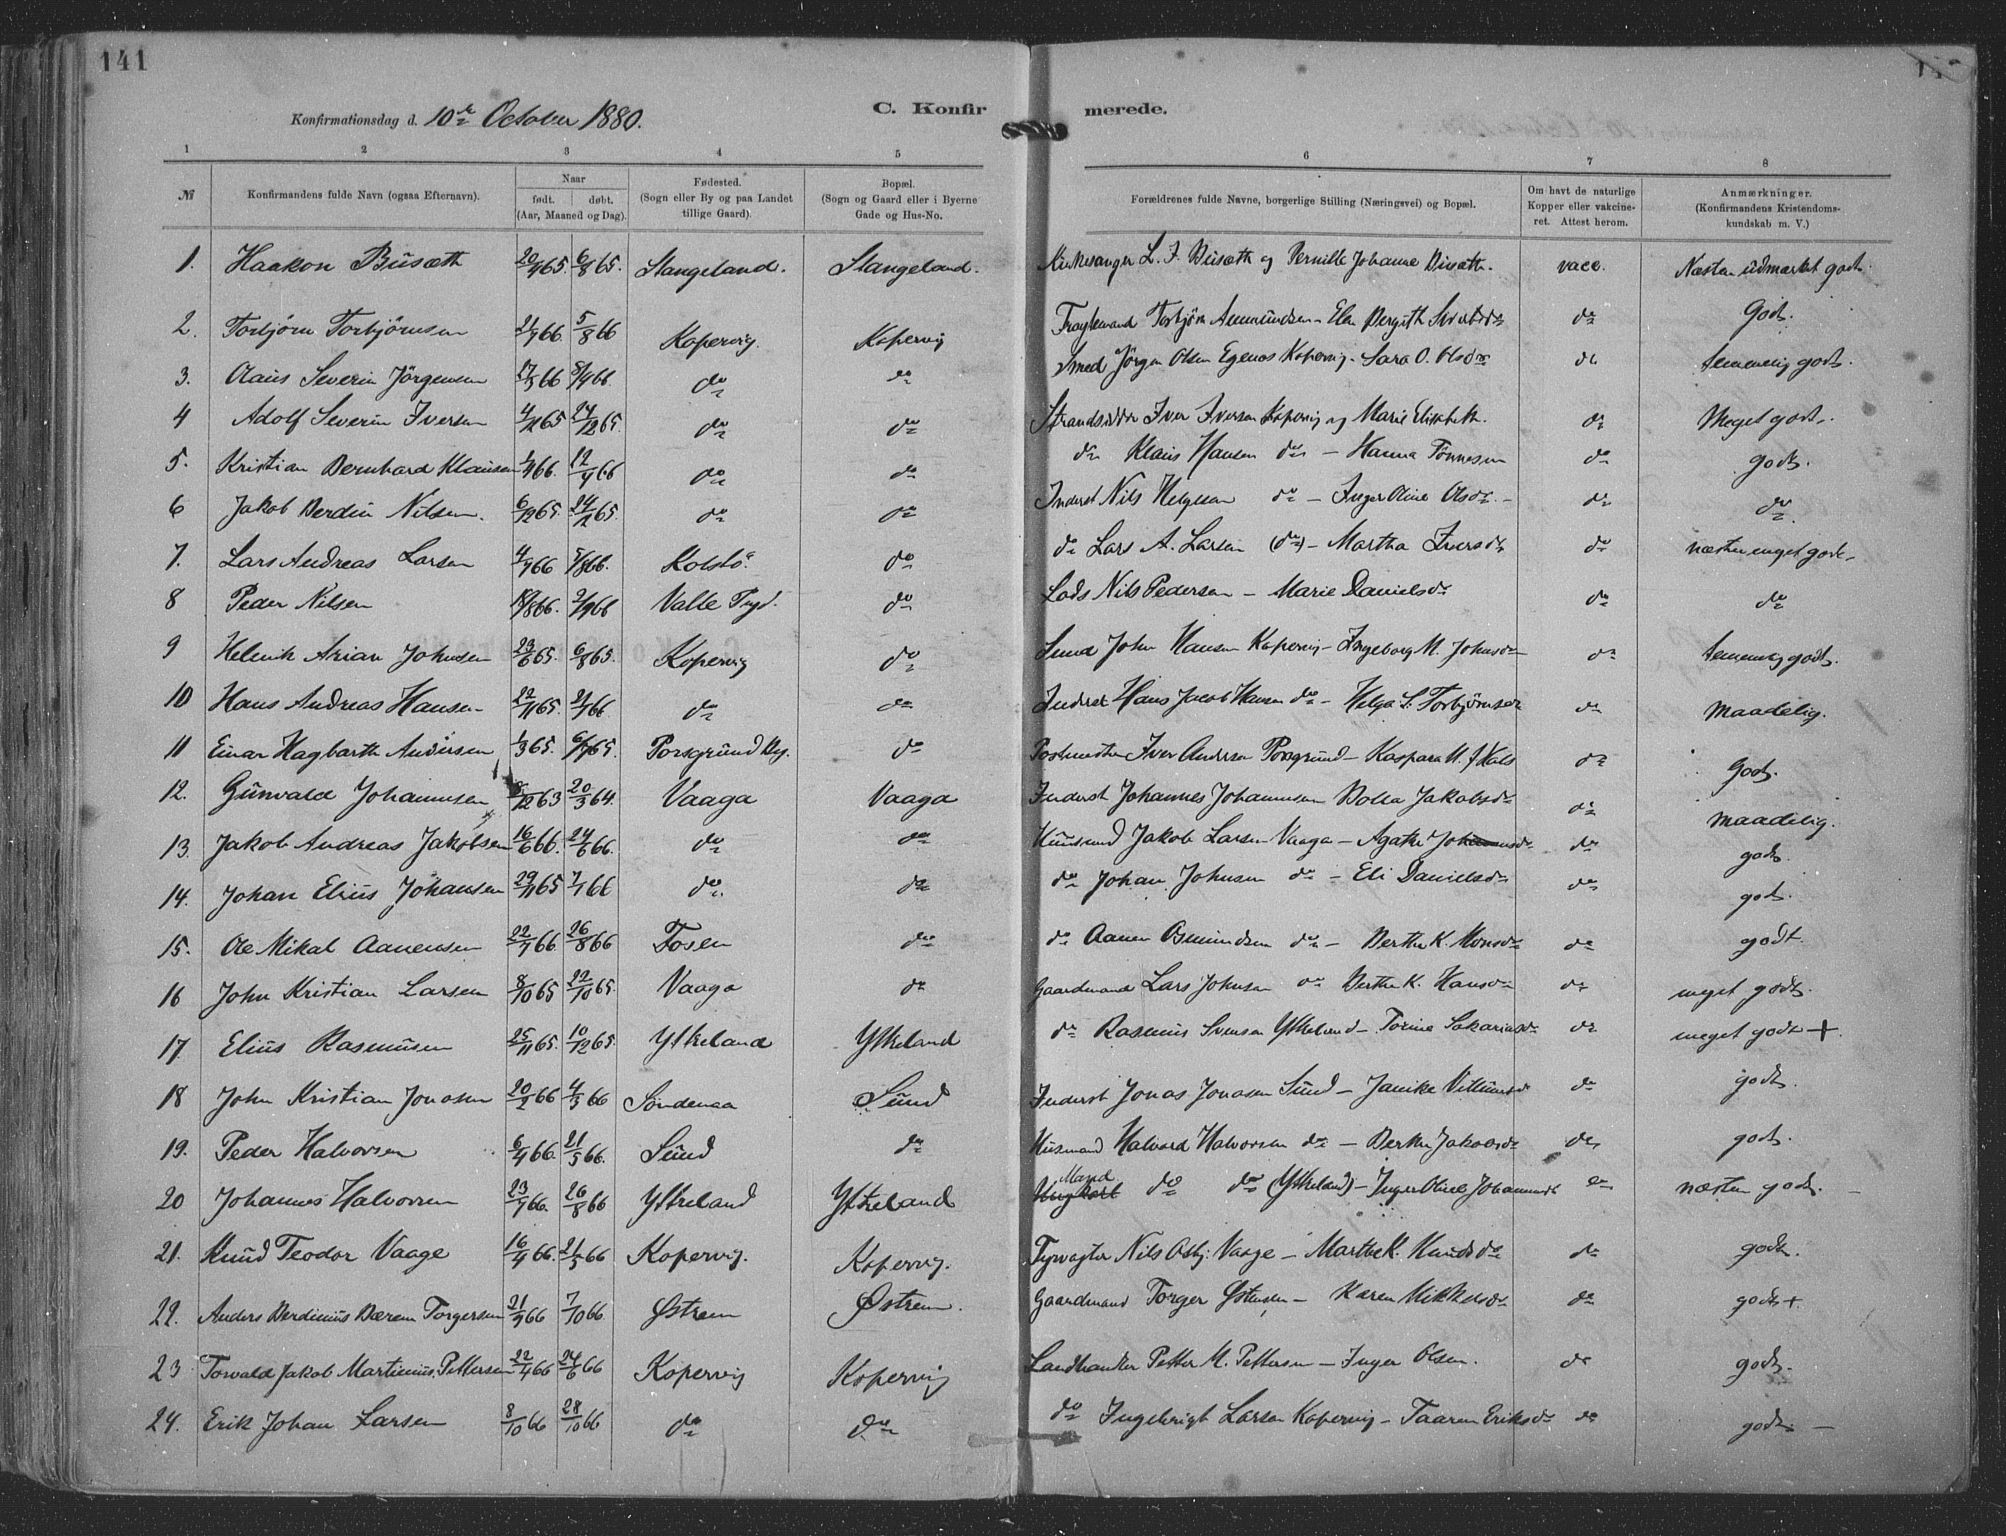 141
Konfirmationsdag d. 10de October 1880.
C. Konfirmerede.
1 2 3 4 5 6 7 8
№ Konfirmandens fulde Navn (ogsaa Efternavn). Naar født. døbt. (Aar, Maaned og Dag). Fødested. (Sogn eller By og paa Landet tillige Gaard). Bopæl. (Sogn og Gaard eller i Byerne Gade og Hus-No. Forældrenes fulde Navne, borgerlige Stilling (Næringsvei) og Bopæl. Om havt de naturlige Kopper eller vakcineret. Attest herom. Anmærkninger. (Konfirmandens Kristendomskundskab m. V.)
1. Haakon Busæth 20/4 65 6/8 65. Stangeland. Stangeland. Kirkesanger L. J. Busæth og Pernille Johanne Busæth. vacc. Næsten udmærket godt.
2. Torbjørn Torbjørnsen 21/7 66 5/8 66 Kopervig. Kopervig Torbjørn Aanmundsen - Elen Bergith do Godt.
3. Olaus Severin Jörgensen 17/3 66 8/4 66 do do Smed Jörgen Olsen Egenes Kopervig - Sara O. Olsdr do temmelig godt.
4 Adolf Severin Iversen 4/11 65 24/12 65. do do Strandsidder Iver Iversen Kopervig og Marie Elisabeth. do Meget godt.
5. Kristian Bernhard Klausen 1/4 66. 12/4 66 do do do Klaus Hansen do - Hanna Tönnesen do godt.
6 Jakob Berdin Nilsen. 6/12 65. 24/12 65. do do Inderst Nils Helgesen do - Inger Oline Olsdr. do do
7. Lars Andreas Larsen 4/7 66 5/8 66. Kolstö. do do Lars A. Larsen (do) - Martha Iversdr do næsten meget godt
8 Peder Nilsen 19/8 66. 2/9 66 Valle do Lods Nils Pedersen - Marie Danielsdr do do
9 Helmik Arian Johnsen 23/6 65. 6/8 65. Kopervig do Smed John Hansen Kopervig - Ingeborg M. Johnsdr do temmelig godt.
10 Hans Andreas Hansen 22/11 65. 2/1 66 do do Inderst Hans Jacob Hansen do - Helga S. Torbjörnsdr do maadelig.
11 Einar Hagbarth Andersen 1/3 65. 6/7 65. Porsgrund do Postmester Iver Andersen Porsgrund - Kaspara M. do Godt.
12. Gunvald Johannesen 8/12 63 20/3 64. Vaaga Vaaga Inderst Johannes Johannesen Bolla Jakobsdr do maadelig.
13. Jakob Andreas Jakobsen 16/6 66. 24/6 66. do do Huusmand Jakob Larsen Vaaga - Agathe do godt.
14. Johan Elius Johansen 29/11 65 7/1 66 do. do do Johan Johnsen do - Eli Danielsdr do godt.
15. Ole Mikal Aanensen 22/7 66 26/8 66 Fosen do do Aanen Osmundsen do - Berthe K. Monsdr do godt.
16 John Kristian Larsen 8/10 65 22/10 65. Vaaga do Gaardmand Lars Johnsen do Berthe K. Hansdr do meget godt.
17. Elius Rasmusen 25/11 65. 10/12 65. Ytreland Ytreland do Rasmus Svensen Ytreland - Torine Sakariasdr do meget godt +
18 John Kristian Jonasen 20/2 66 4/3 66 Söndenaa Sund Inderst Jonas Jonasen Sund - Janike do godt.
19. Peder Halvorsen 6/4 66. 21/5 66. Sund do Husmand Halvard Halvorsen do - Berthe Jakobsdr do godt.
20 Johannes Halvorsen 23/7 66. 26/8 66 Ytreland Ytreland Mand do do (Ytreland) - Inger Oline Johannesdr do næsten godt.
21. Knud Teodor Vaage 16/4 66. 21/5 66 Kopervig. Kopervig. Fyrvagter Nils Asbj. Vaage - Marthe K. Knudsdr do godt.
22. Anders Berdinius Bærem Torgersen 21/9 66 7/10 66 Østrem Østrem. Gaardmand Torger Östensen - Karen Mikkelsdr do godt +
23 Torvald Jakob Martinius Pettersen 22/4 66 24/6 66 Kopervig Kopervig Landhandler Petter M. Pettersen - Inger Olsen. do godt.
24. Erik Johan Larsen 8/10 66 28/10 66 do do do Ingebrigt Larsen Kopervig - Taaren Eriksdr do godt.